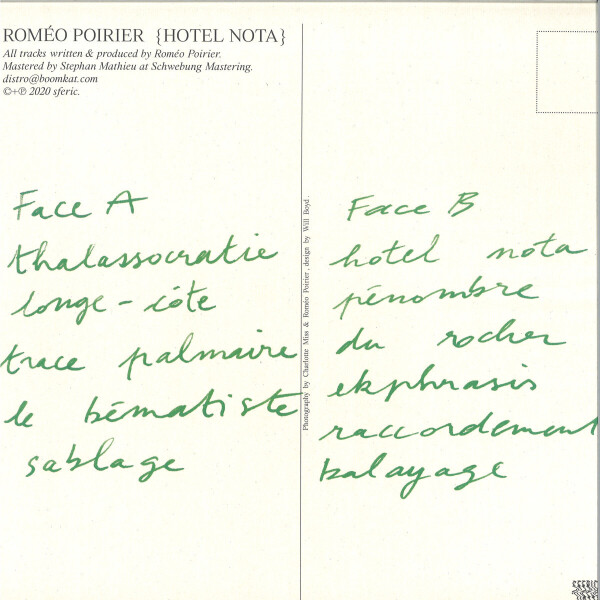 ROMÉO POIRIER {HOTEL NOTA}
All tracks written & produced by Roméo Poirier.
Mastered by Stephan Mathieu at Schwebung Mastering.
distro@boomkat.com
©+℗ 2020 sferic.
Face A
thalassocratie
longe-côte
trace palmaire
le bématiste
sablage
Photography by Charlotte Miss & Roméo Poirier, design by Will Boyd.
Face B
hotel nota
pénombre
du rocher
ekphrasis
raccordement
balayage
SFERIC